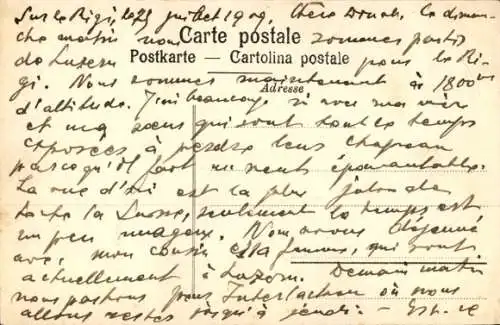 Sur le Rigi, le 25 juillet 1909, Chère Donah, le diman-
che matin nous sommes partis
Carte postale
de Luzern pour le Ri-
Postkarte — Cartolina postale
gi. Nous sommes maintenant à 1800m
Adresse
d'altitude. J'ai beaucoup ri avec ma mère
et ma sœur qui sont tout le temps
exposées à perdre leur chapeau
parce qu'il fait un vent épouvantable.
La vue d'ici est la plus jolie de
toute la Suisse, seulement le temps est
un peu nuageux. Nous avons déjeuné
avec mon cousin et sa femme, qui sont
actuellement à Luzern. Demain matin
nous partons pour Interlachen où nous
allons rester jusqu'à jeudi. — Est-ce